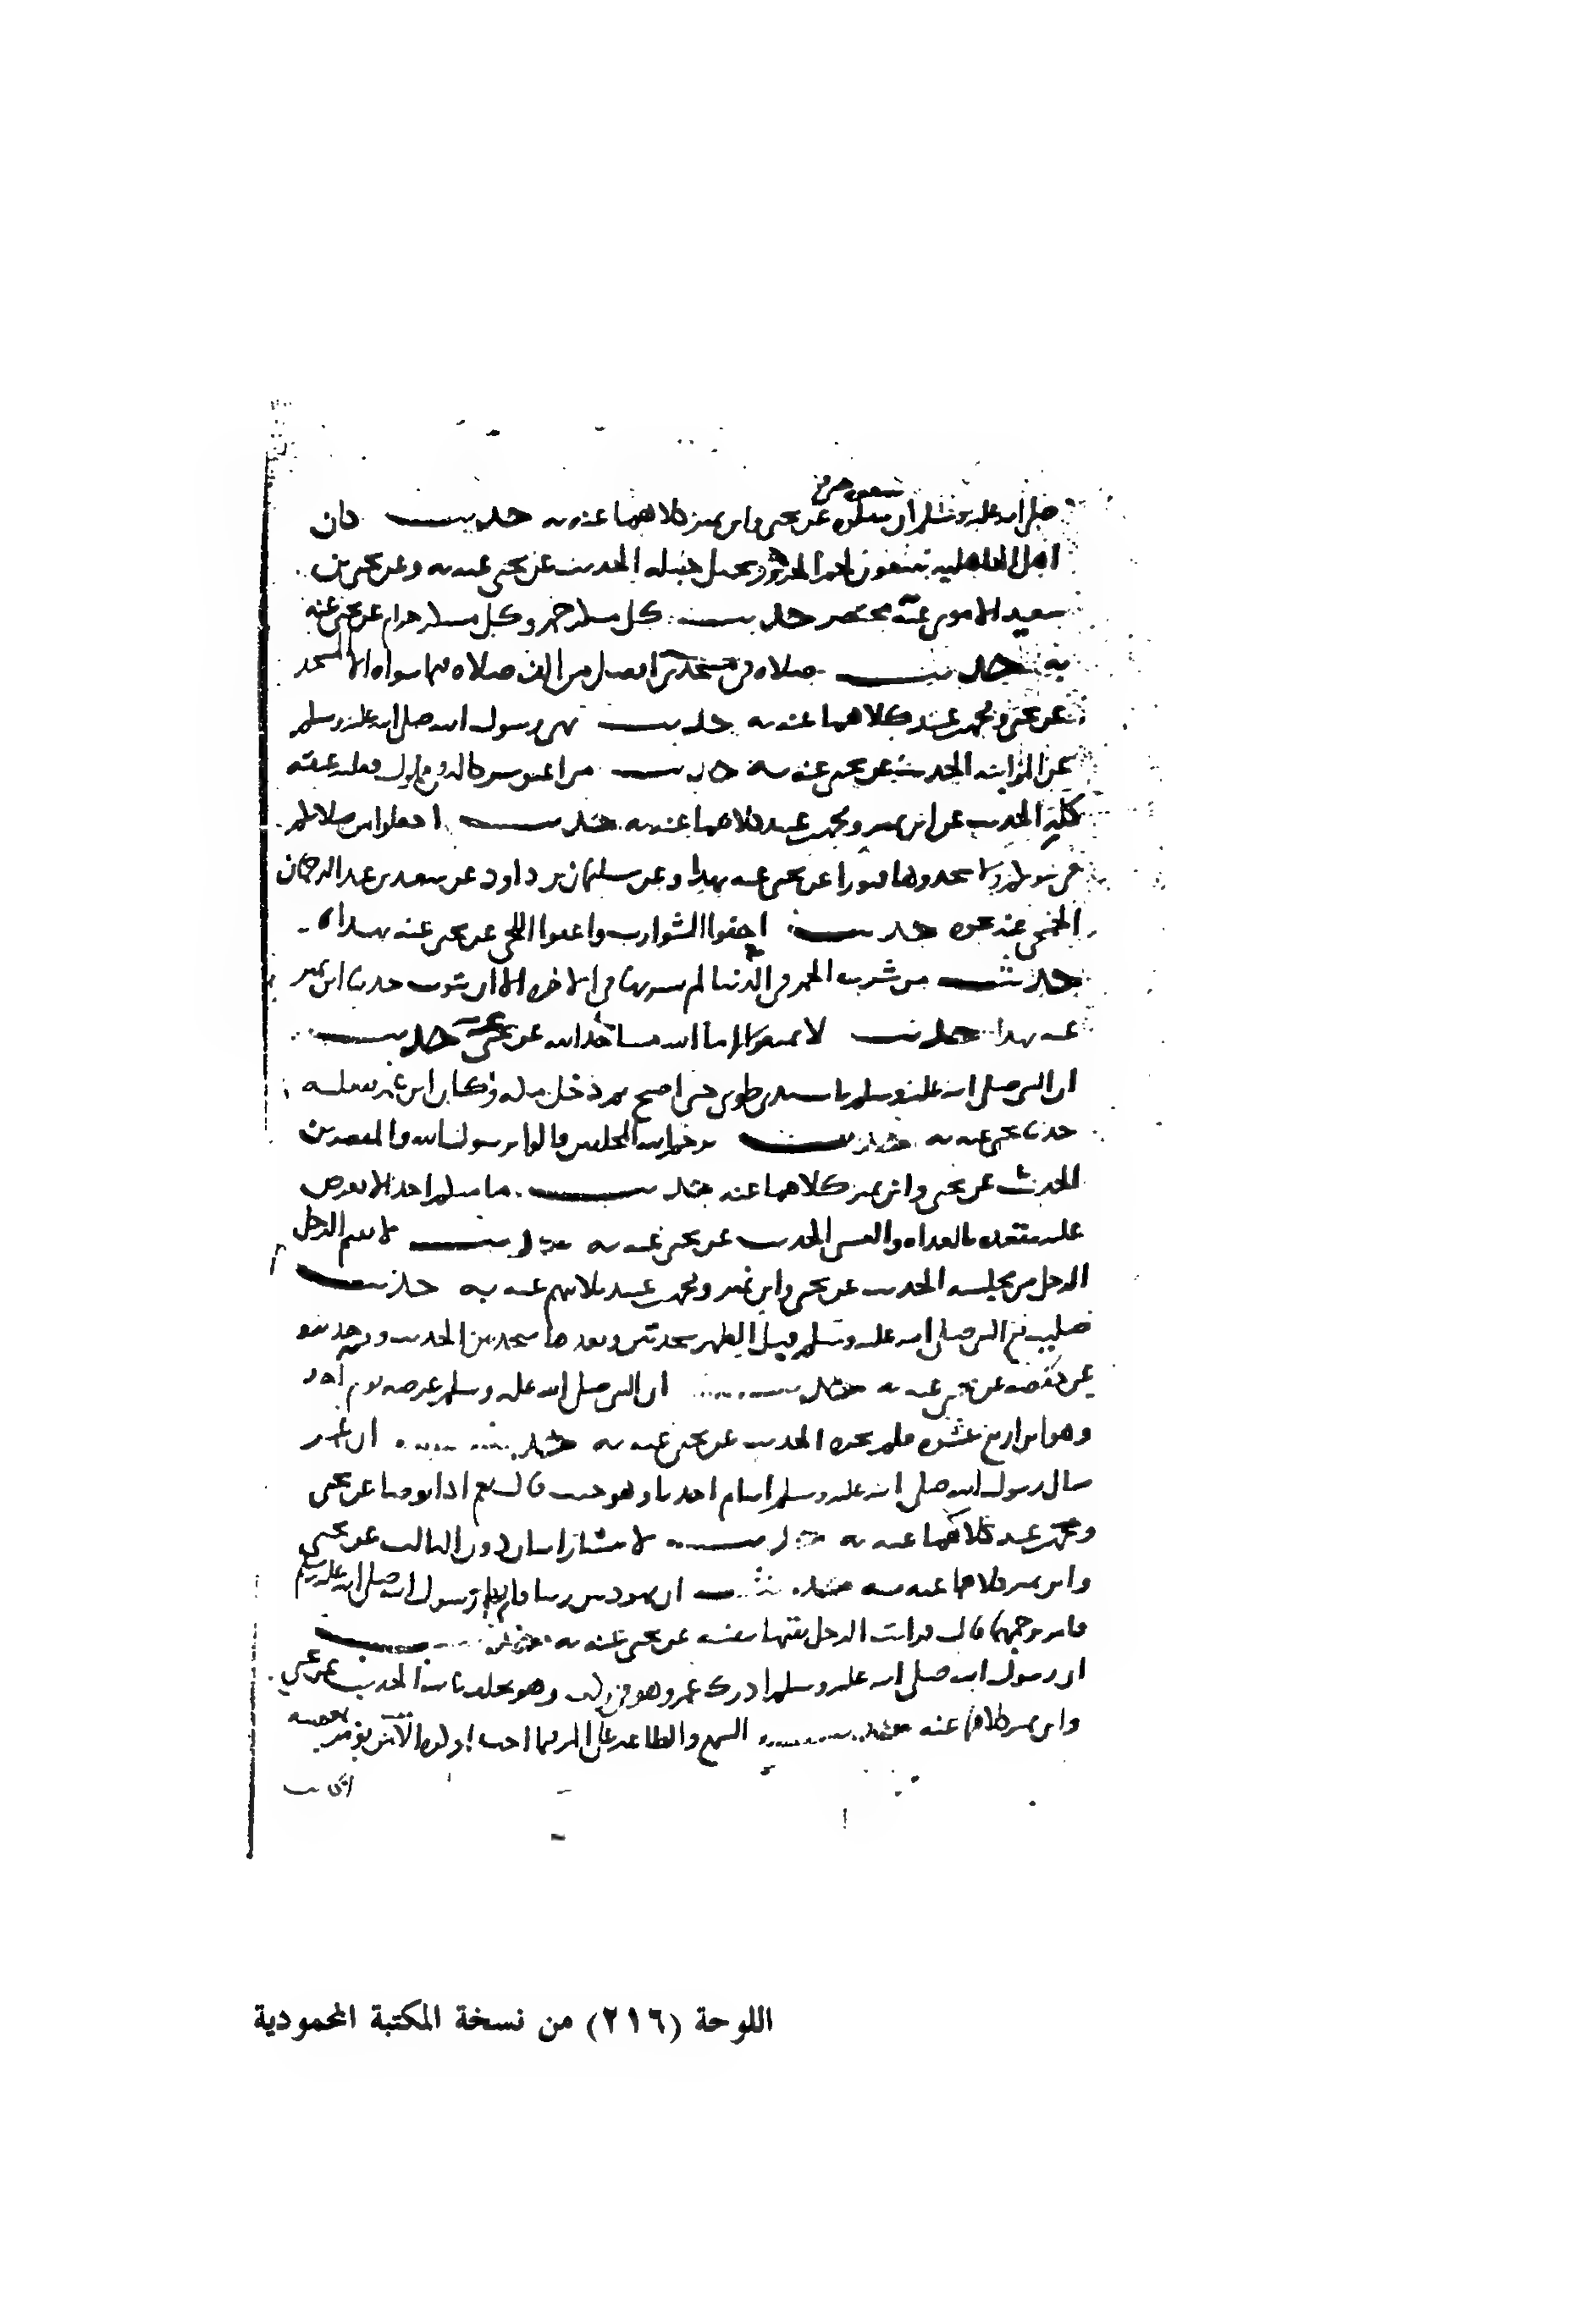 صلى الله عليه وسلم ان عن يحيى وابن نمير كلاهما عنه به حديث كان
اهل الجاهلية يتبعون لحم الجزور بحبل حبله الحديث عن يحيى عنه به وعن يحيى بن
سعيد الاموي عنه مختصر حديث كل مسكر خمر وكل مسكر حرام عن يحيى عنه
به حديث صلاه في مسجدي افضل من الف صلاه فيما سواه الا المسجد
عن يحيى ومحمد بن عبيد كلاهما عنه به حديث نهى رسول الله صلى الله عليه وسلم
عن المزابنه الحديث عن يحيى عنه به حديث من اعتق شركا له في مملوك فعليه عتقه
كله الحديث عن ابن نمير ومحمد بن عبيد كلاهما عنه به حديث اجعلوا من صلاتكم
في بيوتكم ولا تتخذوها قبورا عن يحيى عنه بهذا وعن سليمان بن داود عن سعيد بن عبد الرحمان
الجمحي عنه نحوه حديث احفوا الشوارب واعفوا اللحى عن يحيى عنه بهذا
حديث من شرب الخمر في الدنيا لم يشربها في الاخره الا ان يتوب حدثنا ابن نمير
عنه بهذا حديث لا تمنعوا اماء الله مساجد الله عن يحيى عنه حديث
ان النبي صلى الله عليه وسلم بات بذي طوى حتى اصبح ثم دخل مكه وكان ابن عمر يفعله
حدثنا يحيى عنه به حديث يرحم الله المحلقين قالوا يرسول الله والمقصرين
الحديث عن يحيى وابن نمير كلاهما عنه حديث ما منكم احد الا يعرض
عليه مقعده بالغداه والعشي الحديث عن يحيى عنه به حديث لا يقم الرجل
الرجل من مجلسه الحديث عن يحيى وابن نمير ومحمد بن عبيد ثلاثتهم عنه به حديث
صليت مع النبي صلى الله عليه وسلم قبل الظهر سجدتين وبعدها سجدتين الحديث
عن حفصه عن يحيى عنه به حديث ان النبي صلى الله عليه وسلم عرضه يوم احد
وهو ابن اربع عشره فلم يجزه الحديث عن يحيى عنه به حديث ان عمر
سال رسول الله صلى الله عليه وسلم اينام احدنا وهو جنب قال نعم اذا توضا عن يحيى
ومحمد بن عبيد كلاهما عنه به حديث لا يتسار اثنان دون الثالث عن يحيى
وابن نمير كلاهما عنه به حديث ان يهوديين زنيا فاتي بهما رسول الله صلى الله عليه وسلم
فامر برجمهما قال فرايت الرجل يقيها بنفسه عن يحيى عنه به حديث
ان رسول الله صلى الله عليه وسلم ادرك عمر وهو في ركب وهو يحلف بابيه الحديث عن يحيى
وابن نمير كلاهما عنه حديث السمع والطاعه على المرء فيما احب او كره الا ان يؤمر بمعصيه
اللوحة (٢١٦) من نسخة المكتبة المحمودية